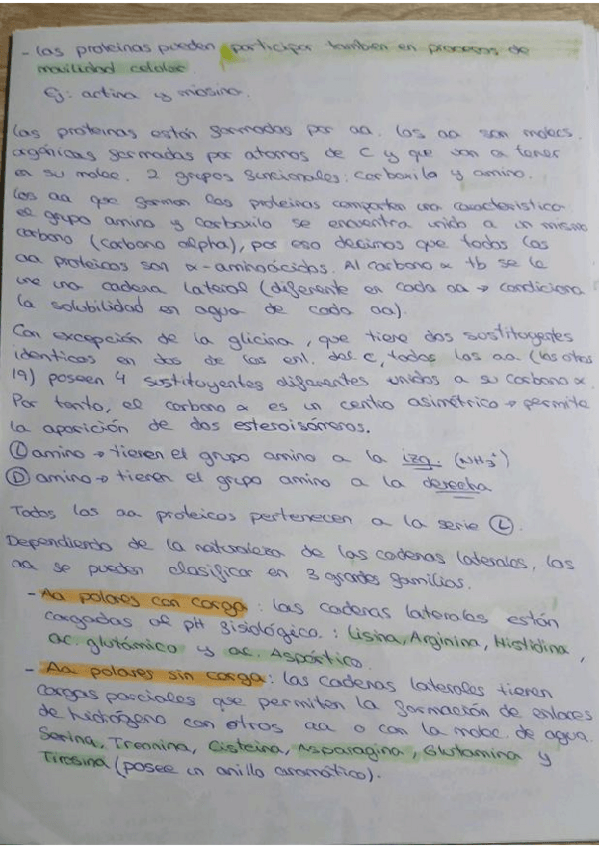 - Las proteinas pueden participar también en procesos de
movilidad celular
Ej: actina y miosina.
Las proteinas están formadas por aa. Los aa son molecs.
orgánicas formadas por atomos de C y que van a tener
en su molec. 2 grupos funcionales: carboxila y amino.
Los aa que forman las proteinas comparten una característica
el grupo amino y carboxilo se encuentra unido a un mismo
carbono (carbono alpha), por eso decimos que todos los
aa proteicos son α-aminoácidos. Al carbono α tb se le
une una cadena lateral (diferente en cada aa → condiciona
la solubilidad en agua de cada aa).
Con excepción de la glicina, que tiene dos sustituyentes
identicos en dos de los enl. del C, todos los aa (los otros
19) poseen 4 sustituyentes diferentes unidos a su carbono α.
Por tanto, el carbono α es un centro asimétrico → permite
la aparición de dos esteroisómeros.
L amino → tienen el grupo amino a la izq. (NH3+)
D amino → tienen el grupo amino a la derecha
Todos los aa proteicos pertenecen a la serie L.
Dependiendo de la naturaleza de las cadenas laterales, los
aa se pueden clasificar en 3 grandes familias.
- Aa polares con carga: las cadenas laterales están
cargadas al pH fisiológico.: Lisina, Arginina, Histidina,
ac. glutámico y ac. Aspártico.
- Aa polares sin carga: las cadenas laterales tienen
cargas parciales que permiten la formación de enlaces
de hidrógeno con otros aa o con la molec. de agua.
Serina, Treonina, Cisteina, Asparagina, Glutamina y
Tirosina (posee un anillo aromático).